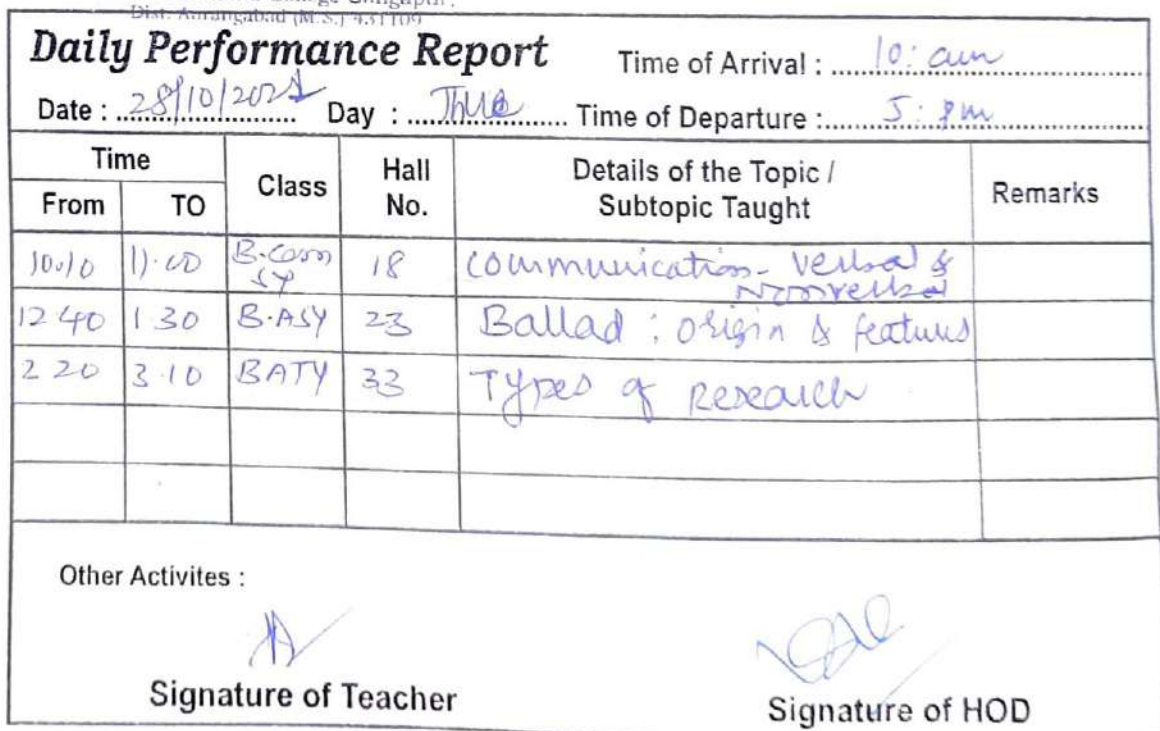 Dist. Aurangabad (M.S.) 431109
Daily Performance Report Time of Arrival : 10: am
Date : 28/10/2021 Day : Thu Time of Departure : 5: pm
Time Class Hall No. Details of the Topic / Subtopic Taught Remarks
From TO
10.10 11.00 B.Com SY 18 Communication- Verbal & Nonverbal
12 40 1 30 B.ASY 23 Ballad : origin & features
2 20 3.10 BATY 33 Types of Research
Other Activites :
Signature of Teacher Signature of HOD